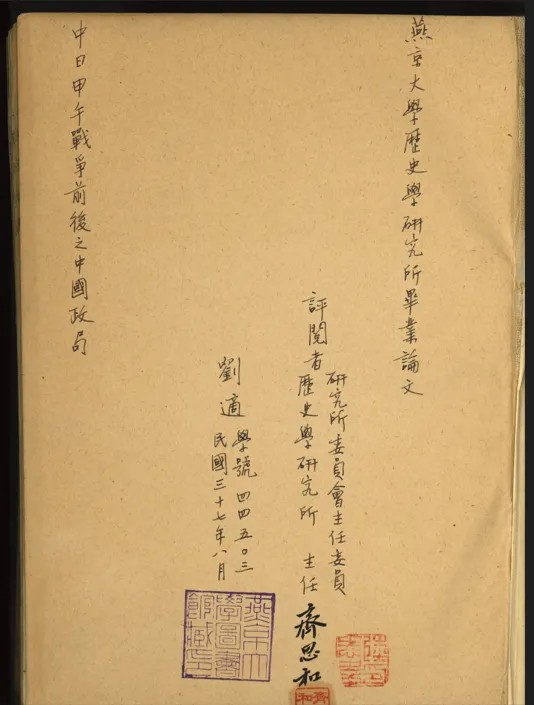 燕京大學歷史學研究所畢業論文
研究所委員會主任委員
評閱者歷史學研究所 主任 齊思和
劉適 學號 四四五〇三
民國三十七年八月
中日甲午戰爭前後之中國政局
燕京大
學圖書
館藏印